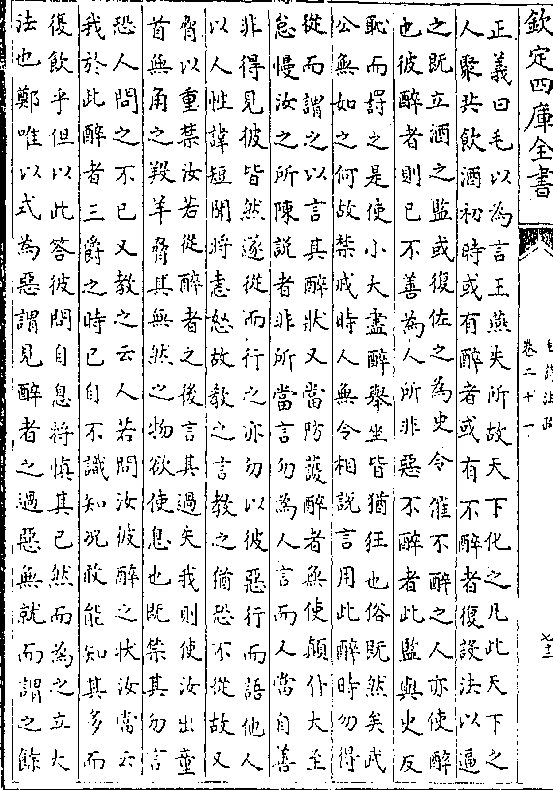 欽定四庫全書
卷二十一
正義曰毛以為言王燕失所故天下化之凡此天下之
人聚共飲酒初時或有醉者或有不醉者復設法以逼
之既立酒之監或復佐之為史令催不醉之人亦使醉
也彼醉者則已不善為人所非惡不醉者此監與史反
恥而罸之是使小大盡醉舉坐皆猶狂也俗既然矣武
公無如之何故禁戒時人無令相說言用此醉時勿得
從而謂之以言其醉狀又當防䕶醉者無使顛仆大至
怠慢汝之所陳說者非所當言勿為人言而人當自善
非得見彼皆然遂從而行之亦勿以彼惡行而語他人
以人性諱短聞將恚怒故教之言教之猶恐不從故又
脅以重禁汝若從醉者之後言其過失我則使汝出童
首無角之羖羊脅其無然之物欲使息也既禁其勿言
恐人問之不已又教之云人若問汝彼醉之狀汝當云
我於此醉者三爵之時已自不識知况敢能知其多而
復飲乎但以此答彼問自息將慎其已然而為之立大
法也鄭唯以式為惡謂見醉者之過惡無就而謂之餘